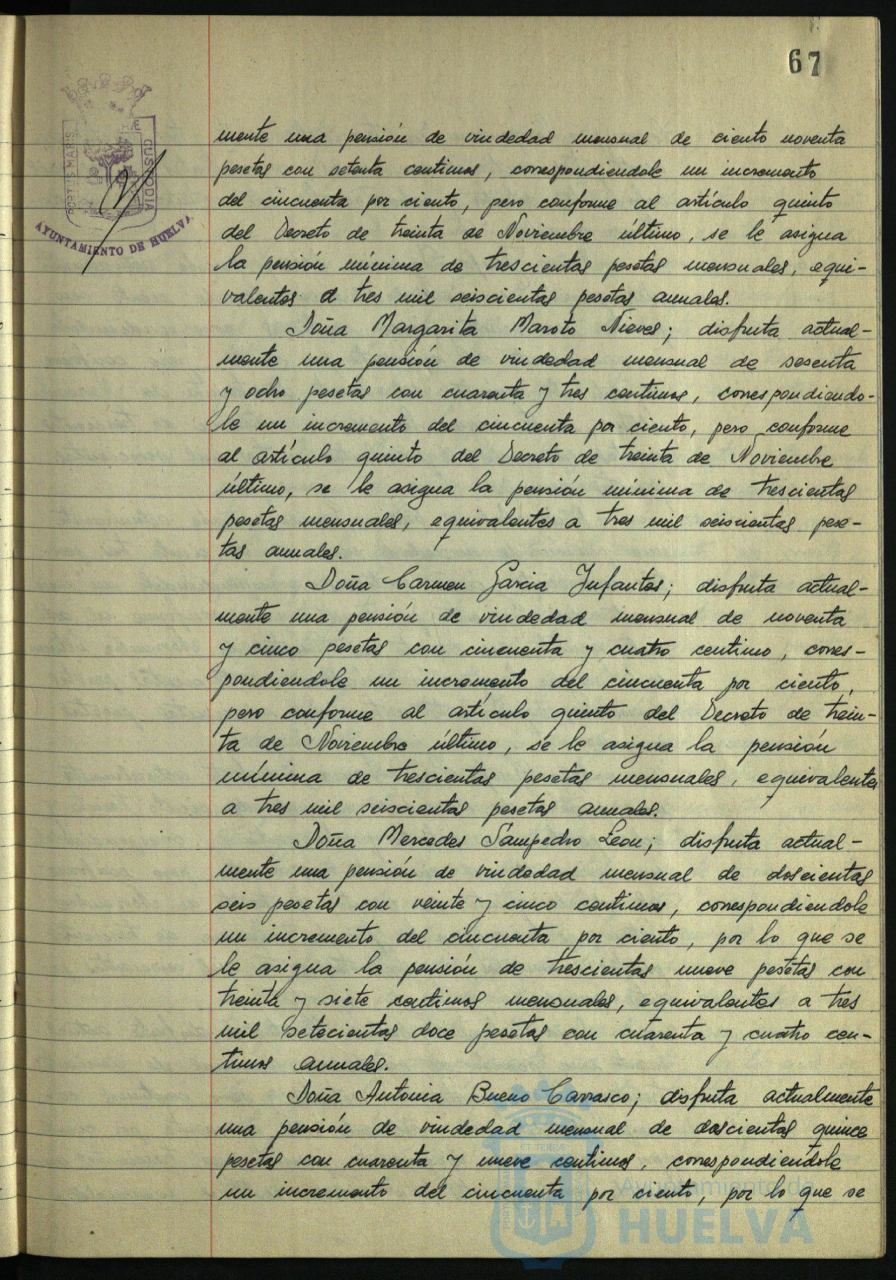 67
PORTUS MARIS
CUSTODIA
AYUNTAMIENTO DE HUELVA
mente una pensión de viudedad mensual de ciento noventa
pesetas con setenta centimos, correspondiendole un incremento
del cincuenta por ciento, pero conforme al artículo quinto
del Decreto de treinta de Noviembre último, se le asigua
la pensión mínima de trescientas pesetas mensuales, equi-
valentes a tres mil seiscientas pesetas anuales.
Doña Margarita Maroto Nieves; disfruta actual-
mente una pensión de viudedad mensual de sesenta
y ocho pesetas con cuarenta y tres centimos, correspondiendo-
le un incremento del cincuenta por ciento, pero conforme
al artículo quinto del Decreto de treinta de Noviembre
último, se le asigna la pensión mínima de trescientas
pesetas mensuales, equivalentes a tres mil seiscientas pese-
tas anuales.
Doña Carmen Garcia Infantes; disfruta actual-
mente una pensión de viudedad mensual de noventa
y cinco pesetas con cincuenta y cuatro centimo, corres-
pondiendole un incremento del cincuenta por ciento,
pero conforme al artículo quinto del Decreto de trein-
ta de Noviembre último, se le asigna la pensión
mínima de trescientas pesetas mensuales, equivalentes
a tres mil seiscientas pesetas anuales.
Doña Mercedes Sampedro Leon; disfruta actual-
mente una pensión de viudedad mensual de doscientas
seis pesetas con veinte y cinco centimos, correspondiendole
un incremento del cincuenta por ciento, por lo que se
le asigna la pensión de trescientas nueve pesetas con
treinta y siete centimos mensuales, equivalentes a tres
mil setecientas doce pesetas con cuarenta y cuatro cen-
timos anuales.
Doña Antonia Bueno Carrasco; disfruta actualmente
una pensión de viudedad mensual de doscientas quince
pesetas con cuarenta y nueve centimos, correspondiendole
un incremento del cincuenta por ciento, por lo que se
Ayuntamiento de
HUELVA